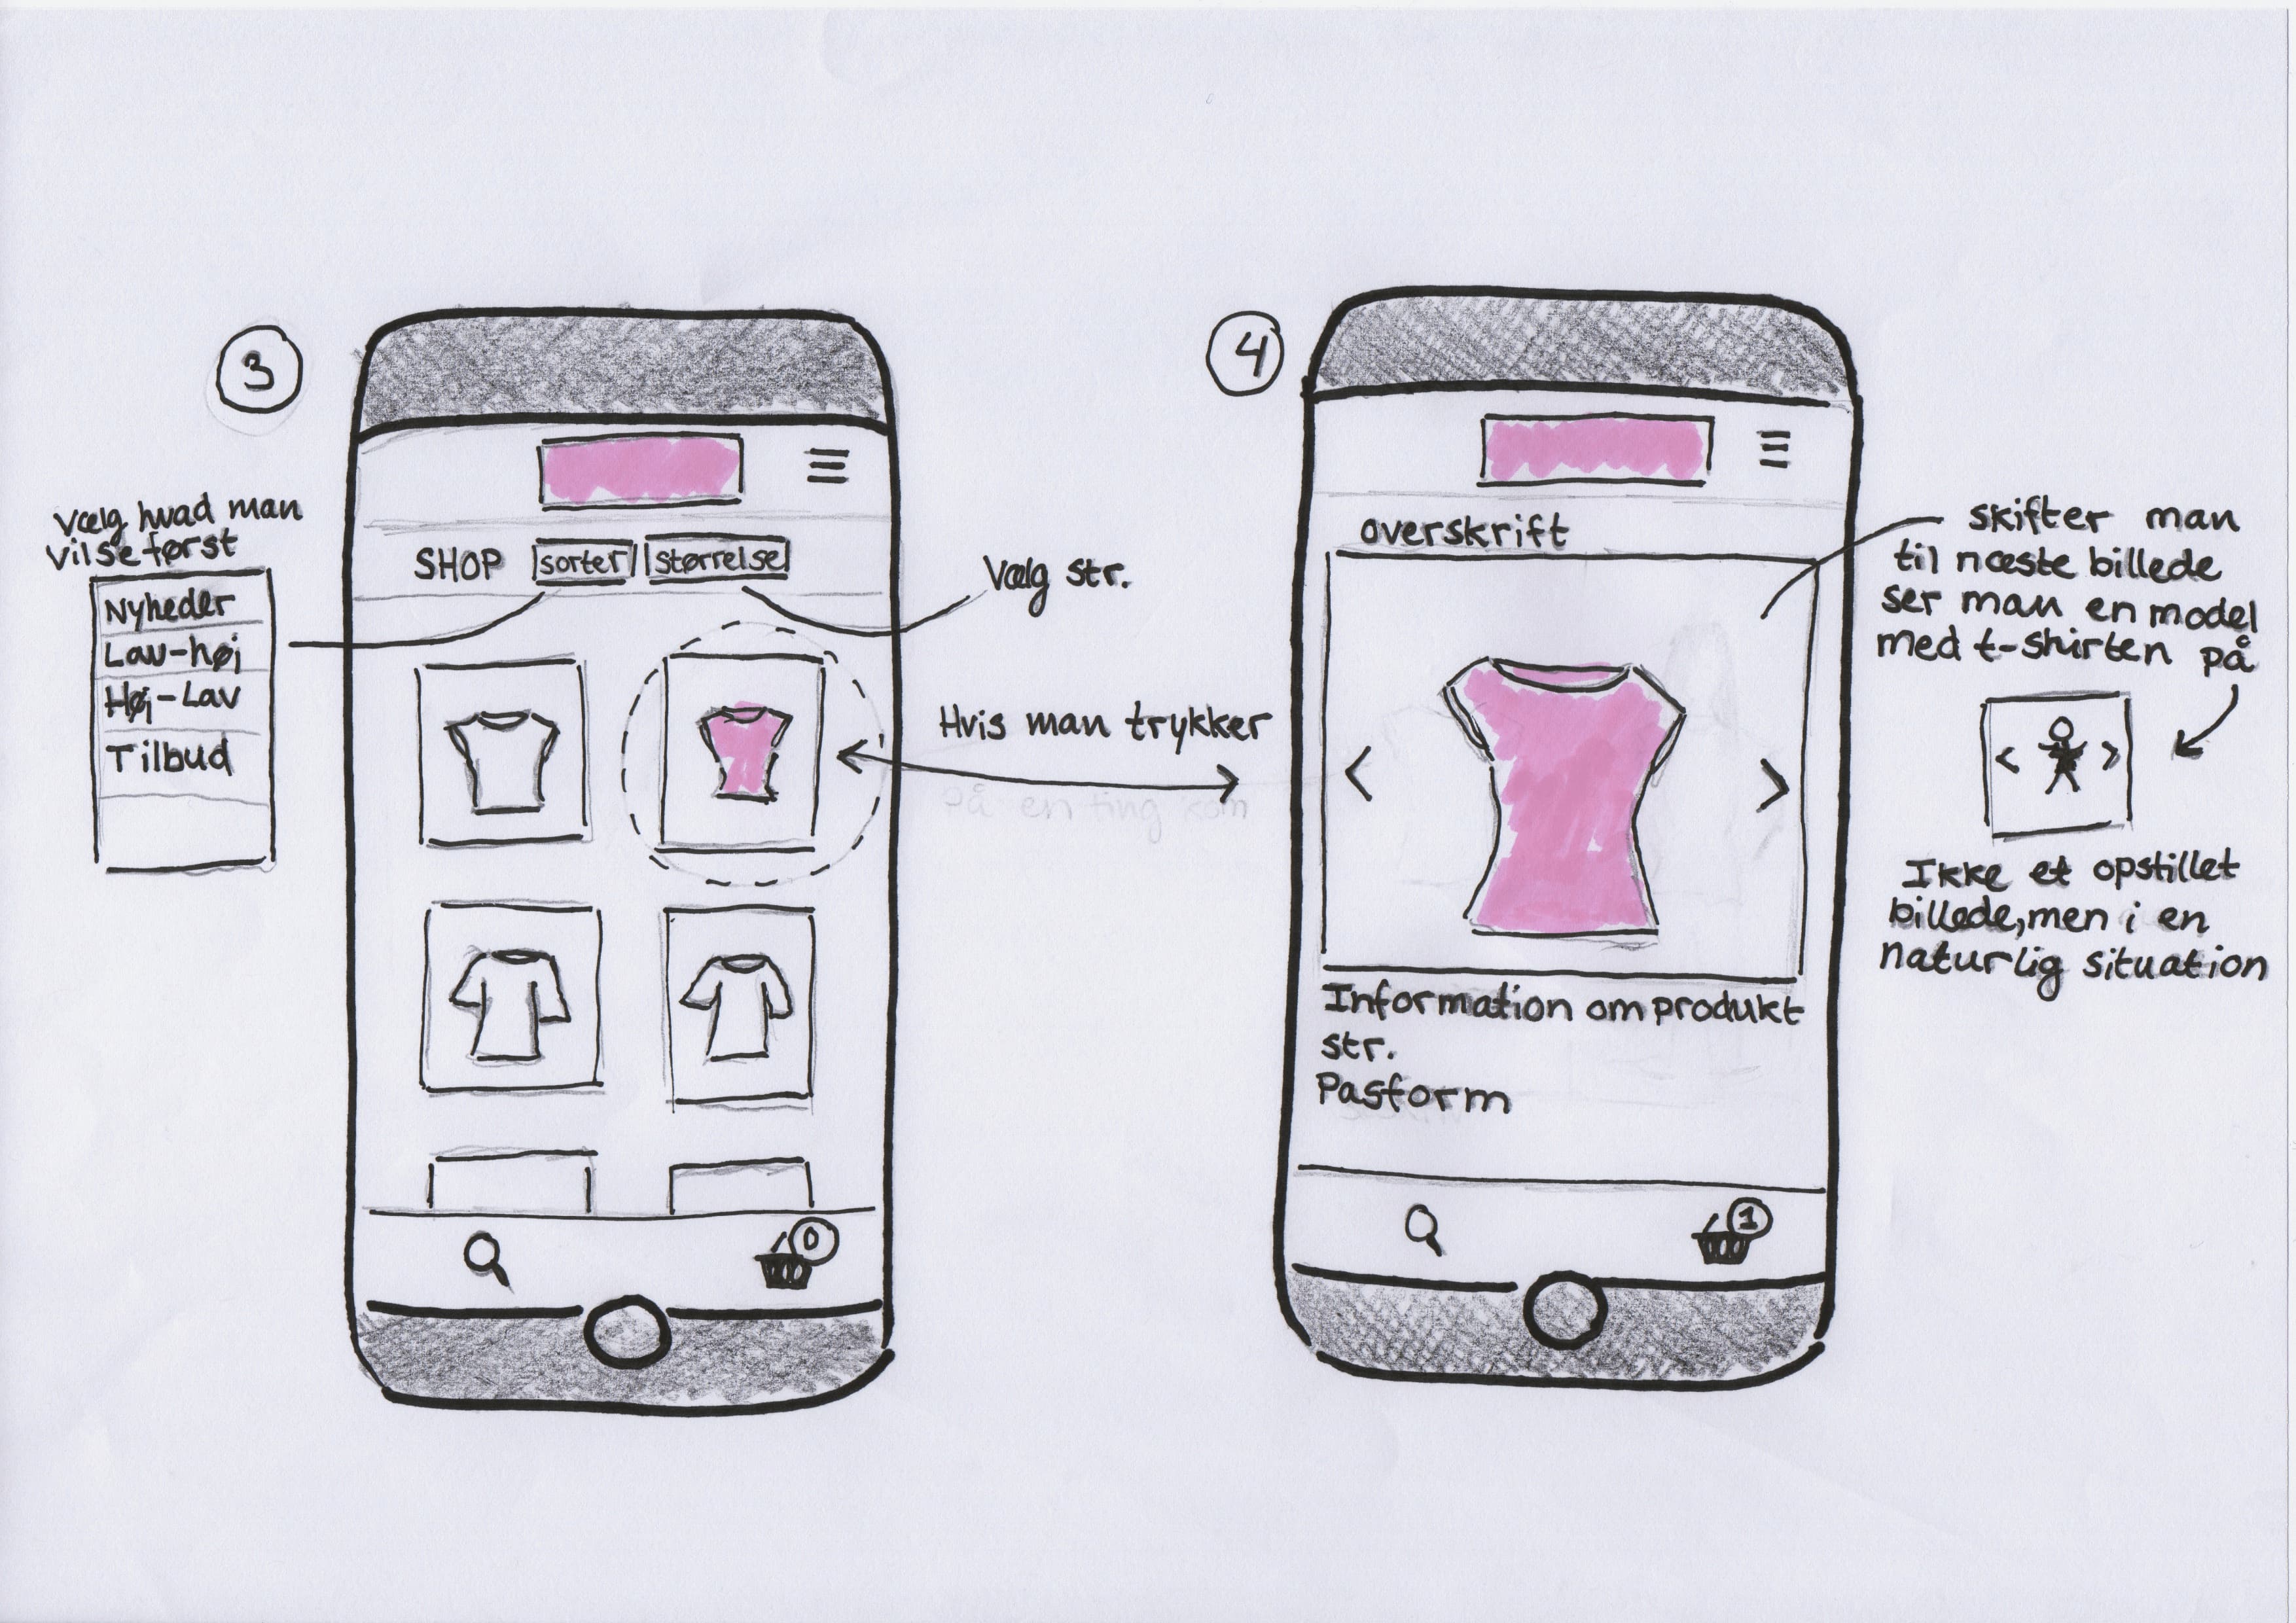 3
Vælg hvad man
vil se først
Nyheder
Lav-høj
Høj-Lav
Tilbud
SHOP sorter størrelse
Vælg str.
Hvis man trykker
på en ting kom
0
4
overskrift
<
>
Information om produkt
str.
Pasform
1
skifter man
til næste billede
ser man en model
med t-shirten på
< >
Ikke et opstillet
billede, men i en
naturlig situation